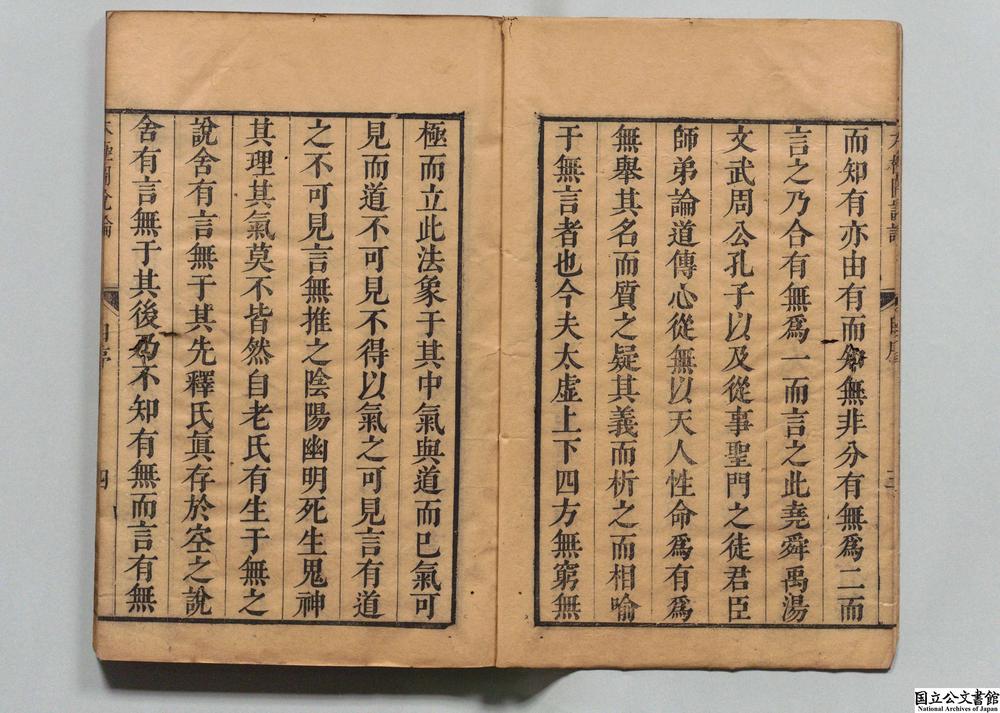 而知有亦由有而知無非分有無爲二而
言之乃合有無爲一而言之此堯舜禹湯
文武周公孔子以及從事聖門之徒君臣
師弟論道傳心從無以天人性命爲有爲
無舉其名而質之疑其義而析之而相喻
于無言者也今夫太虛上下四方無窮無
極而立此法象于其中氣與道而已氣可
見而道不可見不得以氣之可見言有道
之不可見言無推之陰陽幽明死生鬼神
其理其氣莫不皆然自老氏有生于無之
說舍有言無于其先釋氏眞存於空之說
舍有言無于其後乃不知有無而言有無
四
国立公文書館
National Archives of Japan